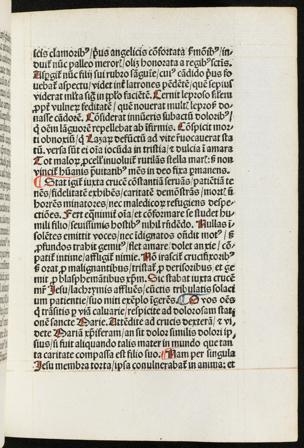 licis clamoribꝰ/ pꝰus angelicis cōfortata ẜmōibꝰ/in
duiť nūc palleo meror/ olīz honorata a regibꝰ sctis.
Aspgiť nūc filii sui rubro sāguie/cuiꝰ cādido pꝰus fo
uebať aspectu/ videt inť latrones pēdētē/ quē sepiꝰ
viderat mīta sig̃ in pp̄lo faciētē. Cernit leproso silem
ꝓpť vulneꝝ feditatē/ quē nouerat mulť leprosꝭ do
nasse cādorē. Cōsiderat innūeris subactū dolorib⁹/
q̄ oēm lāguorē repellebat ab īfirmis. Cōspicit mor
ti obnoxiū/ q̄ Lazaꝝ defūctū ad vite reuocauerat sta
tū. versa sūt ei oīa iocūda in tristia/ ⁊ dulcia ī amara
Tot malorꝝ ꝓcell' inuoluiť rutilās stella mar': ẜ non
vinciť hūanis ꝑuitatibꝰ mēs in deo fixa ꝑmanens.
Stat igiť iuxta crucē cōstantiā seruās/patiētiā te
nēs/fidelitatē exhibēs/caritatē demōstrās/mortꝭ nō
horrēs minatores/nec maledicoꝝ refugiens despe-
ctiōes. Fert eqnimiť oīa/ et cōformare se studet hu
mili filio/seuissimis hostibꝰ nihil rn̄dēdo. Nullas ī
solētes emittit voces/nec idignatōis oñdit motꝰ/ ẜ
ꝓfundos trahit gemitꝰ/flet amare/ dolet anxie/ cō-
patiť intime/affligiť nimie. Nō irasciť crucifixoribꝰ
ẜ orat ꝓ malignantibꝰ/tristať ꝓ derisoribus/ et ge
mit ꝓ blasphemantibus xp̄m. Sic stabat iuxta crucē
Jesu/lachrymis affluēs/cūctis tribulatis solaci
um patientie/ suo miti exēplo īgerēs. O vos oēs
q̄ trāsitis ꝑ viā caluarie/ respicite ad dolorosam stati
onē sancte Marie. Attēdite ad crucis dexterā/ ⁊ vi,
dete Mariā xp̄iferam/ an sit dolor similis dolori ip
sius/si fuit aliquando talis mater in mundo que tan
ta caritate compassa est filio suo. Nam per singula
Jesu membra torta/ipsa conulnerabať in anima: et